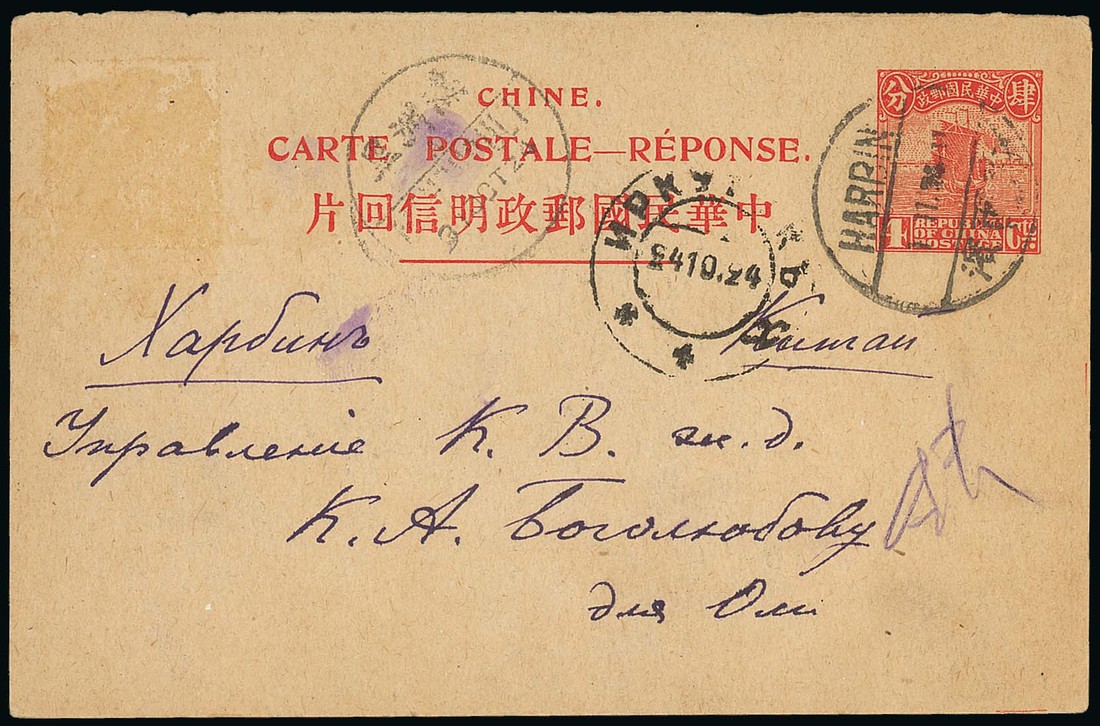 CHINE.
CARTE POSTALE—RÉPONSE.
片回信明政郵國民華中
分 政郵國民華中 肆
4 REPUBLIC OF CHINA POSTAGE CTS
HARBIN
OCT 24
24 10.24
Харбинъ Китай
Управленіе К. В. ж. д.
К. А. Боголюбову
для Оли